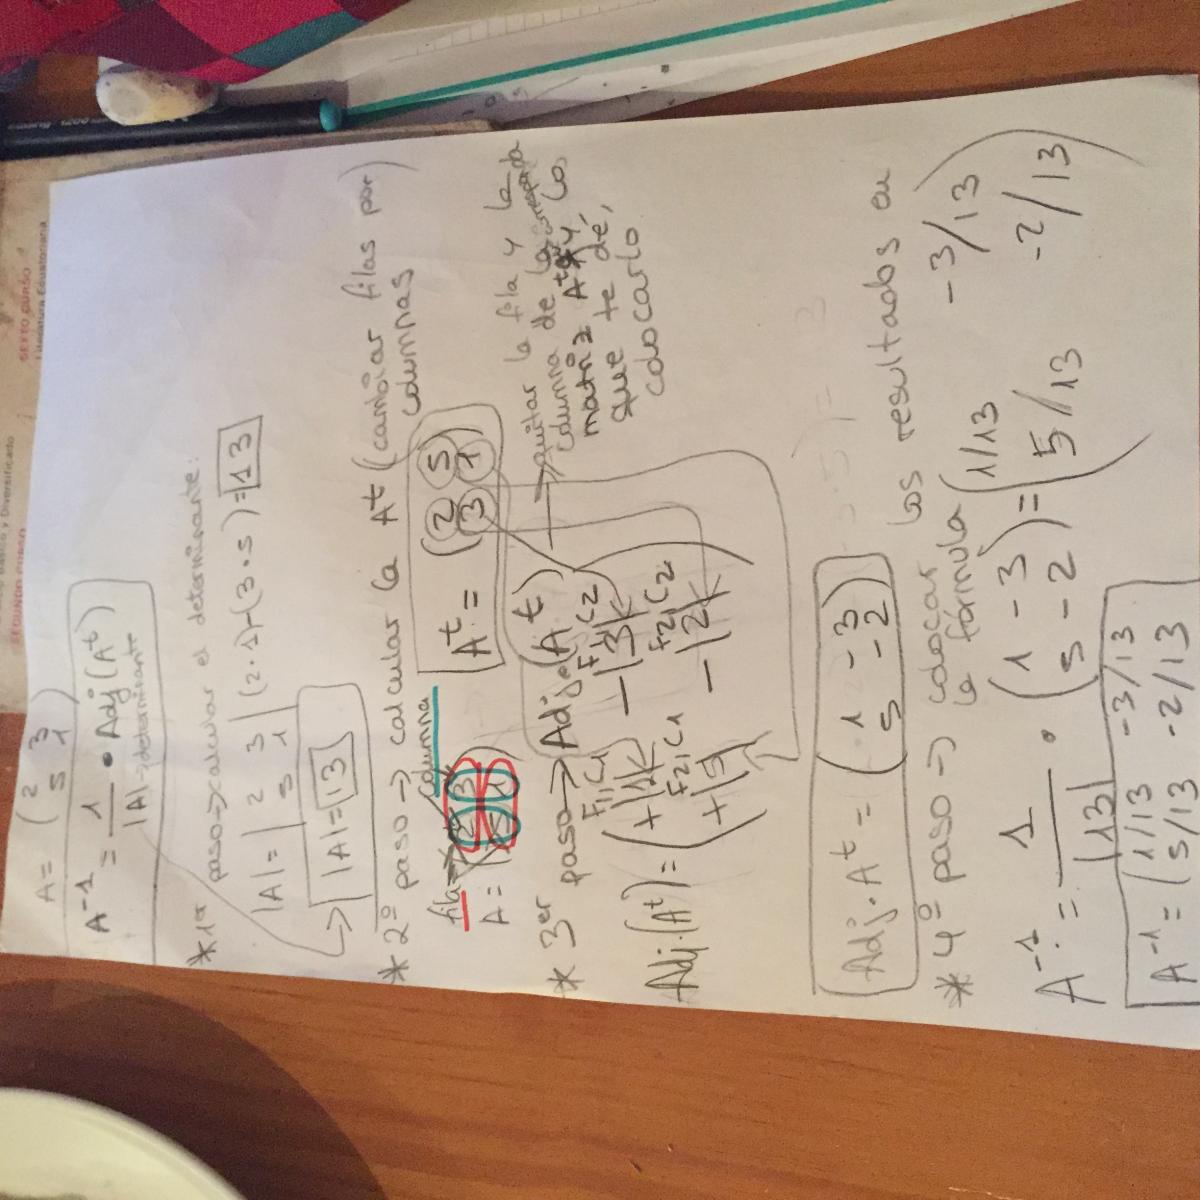 SEXTO CURSO
Literatura Ecuatoriana
Básico y Diversificado
SEGUNDO CURSO
A = (2 3
5 1)
A⁻¹ = 1/|A| • Adj(Aᵗ)
|A| → determinante
* 1er paso → calcular el determinante:
|A| = |2 3
5 1| (2·1)-(3·5) = 13
→ |A| = 13
* 2º paso → calcular la Aᵗ (cambiar filas por
columnas)
fila columna
A = (2 3
5 1)
Aᵗ = (2 5
3 1)
* 3er paso → Adj•(Aᵗ) → quitar la fila y la
columna de la
matriz Aᵗ y lo
que te dé,
colocarlo
F1,C1 F1,C2
Adj.(Aᵗ) = (+|1| -|3|
F2,C1 F2,C2
+|5| -|2|)
Adj. Aᵗ = (1 -3
5 -2)
* 4º paso → colocar los resultados en
la fórmula
A⁻¹ = 1/|13| • (1 -3
5 -2) = (1/13 -3/13
5/13 -2/13)
A⁻¹ = (1/13 -3/13
5/13 -2/13